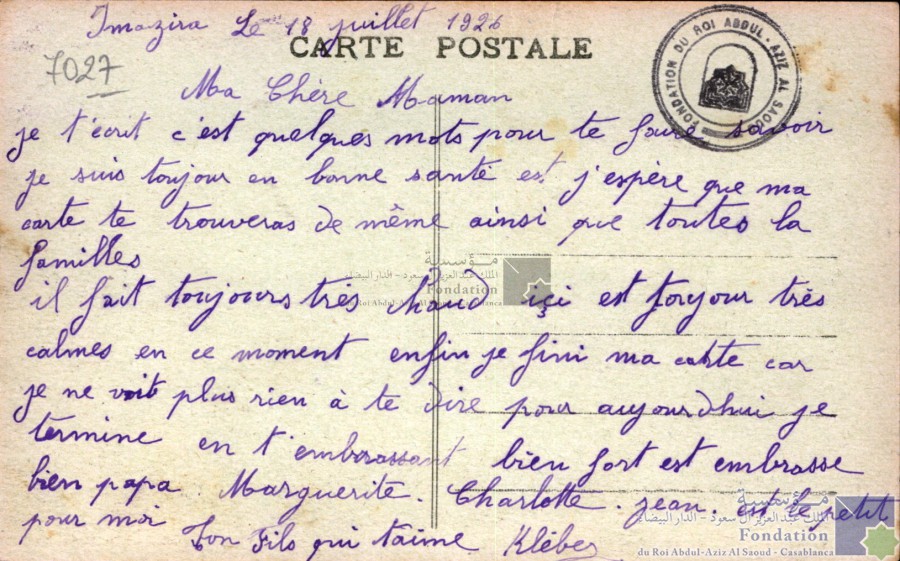 Imazira Le 18 juillet 1926
CARTE POSTALE
7027
FONDATION DU ROI ABDUL-AZIZ AL SAOUD
Ma Chère Maman
je t'écrit c'est quelques mots pour te faire savoir
je suis toujour en bonne santé est j'espère que ma
carte te trouveras de même ainsi que toutes la
familles
il fait toujours très chaud içi est toujour très
calmes en ce moment enfin je fini ma carte car
je ne voit plus rien à te dire pour aujourdhui je
termine en t'embrassant bien fort est embrasse
bien papa. Marguerite. Charlotte. jean. est le petit
pour moi
Ton Fils qui taime Kléber
مؤسسة
الملك عبد العزيز آل سعود - الدار البيضاء
Fondation
du Roi Abdul-Aziz Al Saoud - Casablanca
مؤسسة
الملك عبد العزيز آل سعود - الدار البيضاء
Fondation
du Roi Abdul-Aziz Al Saoud - Casablanca